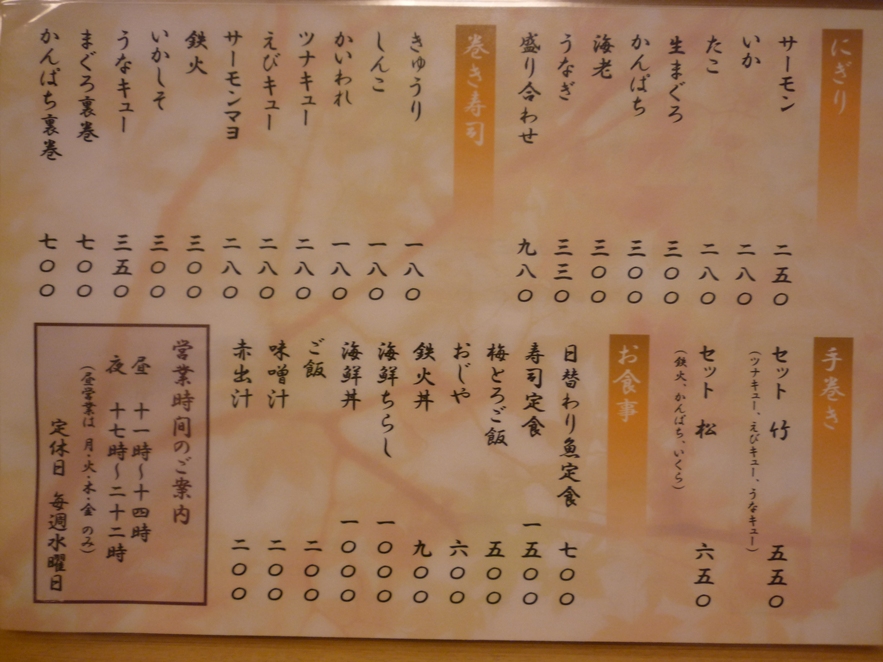 にぎり
サーモン 二五〇
いか 二八〇
たこ 二八〇
生まぐろ 三〇〇
かんぱち 三〇〇
海老 三〇〇
うなぎ 三三〇
盛り合わせ 九八〇
巻き寿司
きゅうり 一八〇
しんこ 一八〇
かいわれ 一八〇
ツナキュー 二八〇
えびキュー 二八〇
サーモンマヨ 二八〇
鉄火 三〇〇
いかしそ 三〇〇
うなキュー 三五〇
まぐろ裏巻 七〇〇
かんぱち裏巻 七〇〇
手巻き
セット 竹 五五〇
(ツナキュー、えびキュー、うなキュー)
セット 松 六五〇
(鉄火、かんぱち、いくら)
お食事
日替わり魚定食 七〇〇
寿司定食 一五〇〇
梅とろご飯 五〇〇
おじや 六〇〇
鉄火丼 九〇〇
海鮮ちらし 一〇〇〇
海鮮丼 一〇〇〇
ご飯 二〇〇
味噌汁 二〇〇
赤出汁 二〇〇
営業時間のご案内
昼 十一時〜十四時
夜 十七時〜二十二時
(昼営業は 月・火・木・金 のみ)
定休日 毎週水曜日